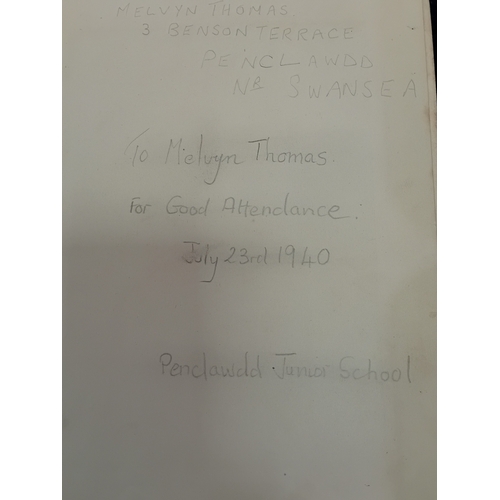 MELVYN THOMAS.
3 BENSON TERRACE
PENCLAWDD
NR SWANSEA
To Melvyn Thomas.
For Good Attendance:
July 23rd 1940
Penclawdd Junior School